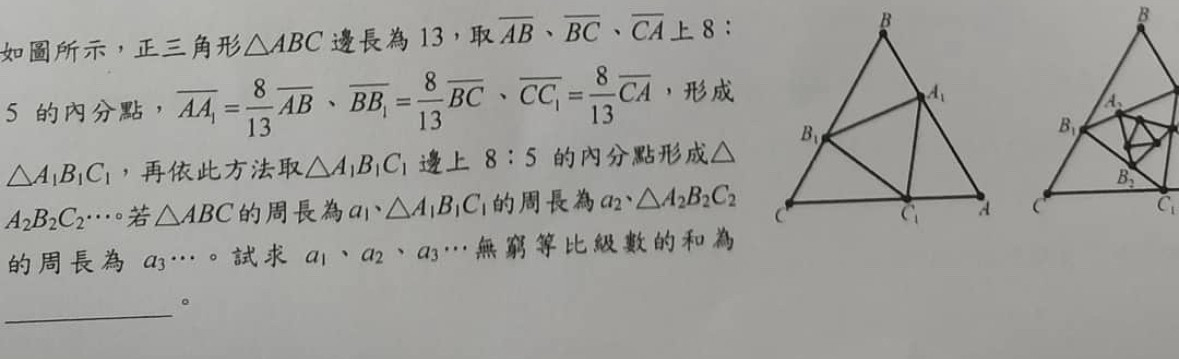 如圖所示，正三角形△ABC 邊長為 13，取 \overline{AB}、\overline{BC}、\overline{CA} 上 8：
5 的內分點，\overline{AA₁} = 8/13 \overline{AB}、\overline{BB₁} = 8/13 \overline{BC}、\overline{CC₁} = 8/13 \overline{CA}，形成
△A₁B₁C₁，再依此方法取△A₁B₁C₁ 邊上 8：5 的內分點形成△
A₂B₂C₂…。若△ABC 的周長為 a₁、△A₁B₁C₁ 的周長為 a₂、△A₂B₂C₂
的周長為 a₃…。試求 a₁、a₂、a₃…無窮等比級數的和為
。
B
A₁
B₁
C
C₁
A
B
A₂
B₁
B₂
C
C₁